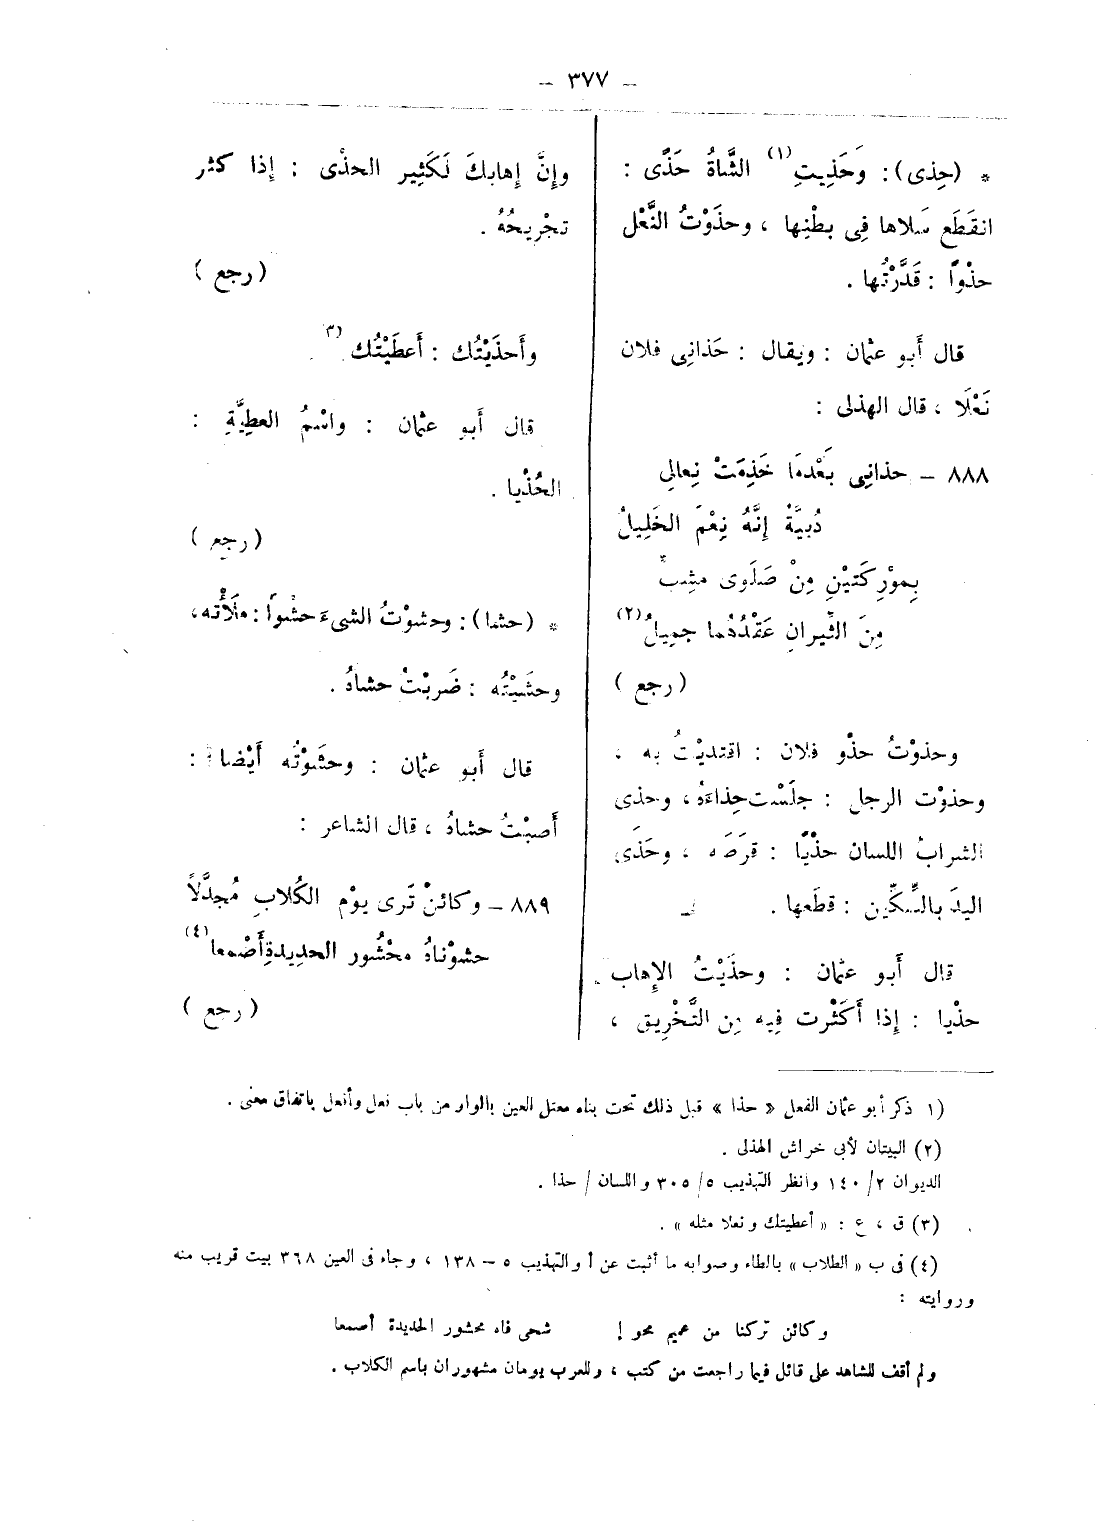 – ٣٧٧ –
* (حِذى): وَحَذِيتِ(١) الشَّاةُ حَذًى :
انقَطَع سَلاها فِى بطْنِها ، وحذَوْتُ النَّعْل
حذْواً : قَدَّرْتُها .
قال أَبو عثمان : ويقال : حَذانِى فلان
نَعْلا ، قال الهذلى :
٨٨٨ – حذانِى بَعْدمَا خَذِمَتْ نِعالِى
دُبيَّةُ إِنَّهُ نِعْمَ الخَلِيلُ
بِموْرِكَتيْنِ مِنْ صَلَوى مشِبٍّ
مِنَ الثِّيرانِ عَقْدُهُما جمِيلُ(٢)
( رجع )
وحذوْتُ حذْو فلان : اقتديْتُ به ،
وحذوْت الرجل : جلَسْت حِذاءَهُ ، وحذى
الشرابُ اللسان حذْيًا : قرَصَه ، وحَذَى
اليدَ بالسِّكِّين : قطَعها .
قال أَبو عثمان : وحذَيْتُ الإِهاب
حذْيا : إِذا أَكَثْرت فِيه مِن التَّخْرِيق ،
وإِنَّ إِهابكَ لَكَثِير الحذْى : إِذا كثر
تجْرِيحُهُ .
( رجع )
وأَحذَيْتُك : أَعطَيْتُك (٣) .
قال أَبو عثمان : واسْمُ العطِيَّةِ :
الحُذْيا .
( رجع )
* (حشا): وحشوْتُ الشىءَ حشْواً : ملَأْته ،
وحشَيْتُه : ضَربْتْ حشاهُ .
قال أَبو عثمان : وحشَوْتُه أَيْضا :
أَصبْتُ حشاهُ ، قال الشاعر :
٨٨٩ – وكائنْ تَرى يوْم الكُلابِ مُجدَّلاً
حشوْناهُ محْشُور الحدِيدةِ أَصْمعا(٤)
( رجع )
(١ ذكر أبو عثمان الفعل « حذا » قبل ذلك تحت بناء معتل العين بالواو من باب فعل وأفعل باتفاق معنى .
(٢) البيتان لأبى خراش الهذلى .
الديوان ٢/ ١٤٠ وانظر التهذيب ٥/ ٣٠٥ واللسان / حذا .
(٣) ق ، ع : « أعطيتك ونعلا مثله » .
(٤) فى ب « الطلاب » بالطاء وصوابه ما أثبت عن أ والتهذيب ٥ – ١٣٨ ، وجاء فى العين ٣٦٨ بيت قريب منه
وروايته :
وكائن تركنا من عميم محو ! شحى فاه محشور الحديدة أصمعا
ولم أقف للشاهد على قائل فيما راجعت من كتب ، وللعرب يومان مشهوران باسم الكلاب .